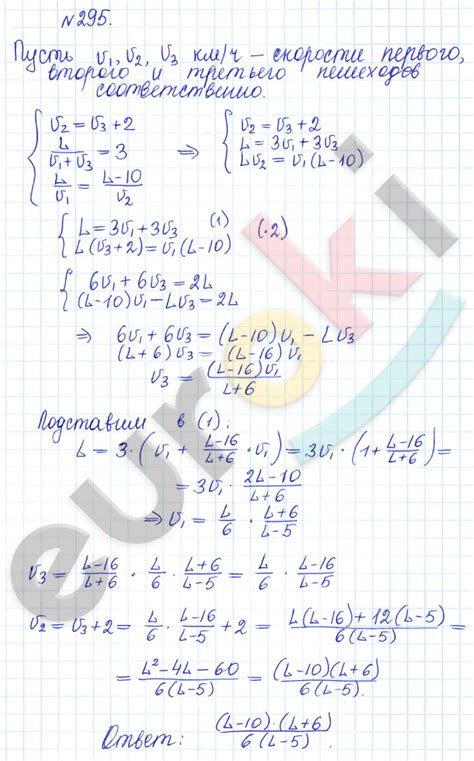 №295.
Пусть v₁, v₂, v₃ км/ч – скорости первого,
второго и третьего пешеходов
соответственно.
{ v₂ = v₃ + 2
L/(v₁+v₃) = 3
L/v₁ = (L-10)/v₂
⇒ { v₂ = v₃ + 2
L = 3v₁ + 3v₃
Lv₂ = v₁(L-10)
{ L = 3v₁ + 3v₃ (1) (·2)
L(v₃+2) = v₁(L-10)
{ 6v₁ + 6v₃ = 2L
(L-10)v₁ - Lv₃ = 2L
⇒ 6v₁ + 6v₃ = (L-10)v₁ - Lv₃
(L+6)v₃ = (L-16)v₁
v₃ = (L-16)v₁/(L+6)
Подставим в (1):
L = 3·(v₁ + (L-16)/(L+6)·v₁) = 3v₁·(1 + (L-16)/(L+6)) =
= 3v₁ · (2L-10)/(L+6)
⇒ v₁ = L/6 · (L+6)/(L-5)
v₃ = (L-16)/(L+6) · L/6 · (L+6)/(L-5) = L/6 · (L-16)/(L-5)
v₂ = v₃ + 2 = L/6 · (L-16)/(L-5) + 2 = (L(L-16)+12(L-5))/(6(L-5)) =
= (L²-4L-60)/(6(L-5)) = ((L-10)(L+6))/(6(L-5)).
Ответ: ((L-10)·(L+6))/(6(L-5)).
euroki